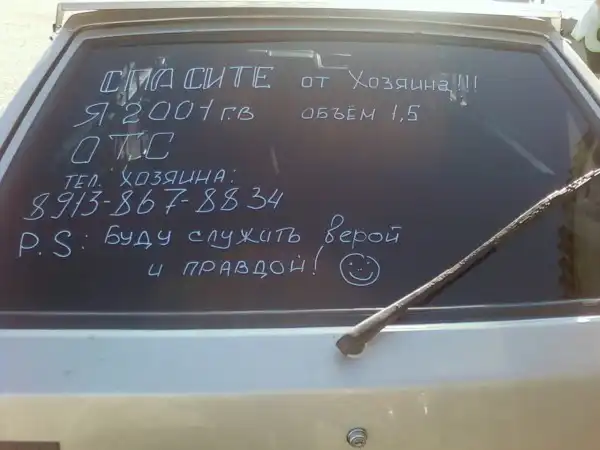 СПАСИТЕ от Хозяина!!!
Я 2001 г.в ОБЪЁМ 1,5
ОТС
ТЕЛ. ХОЗЯИНА:
8913-867-8834
P.S: Буду служить верой
и правдой!